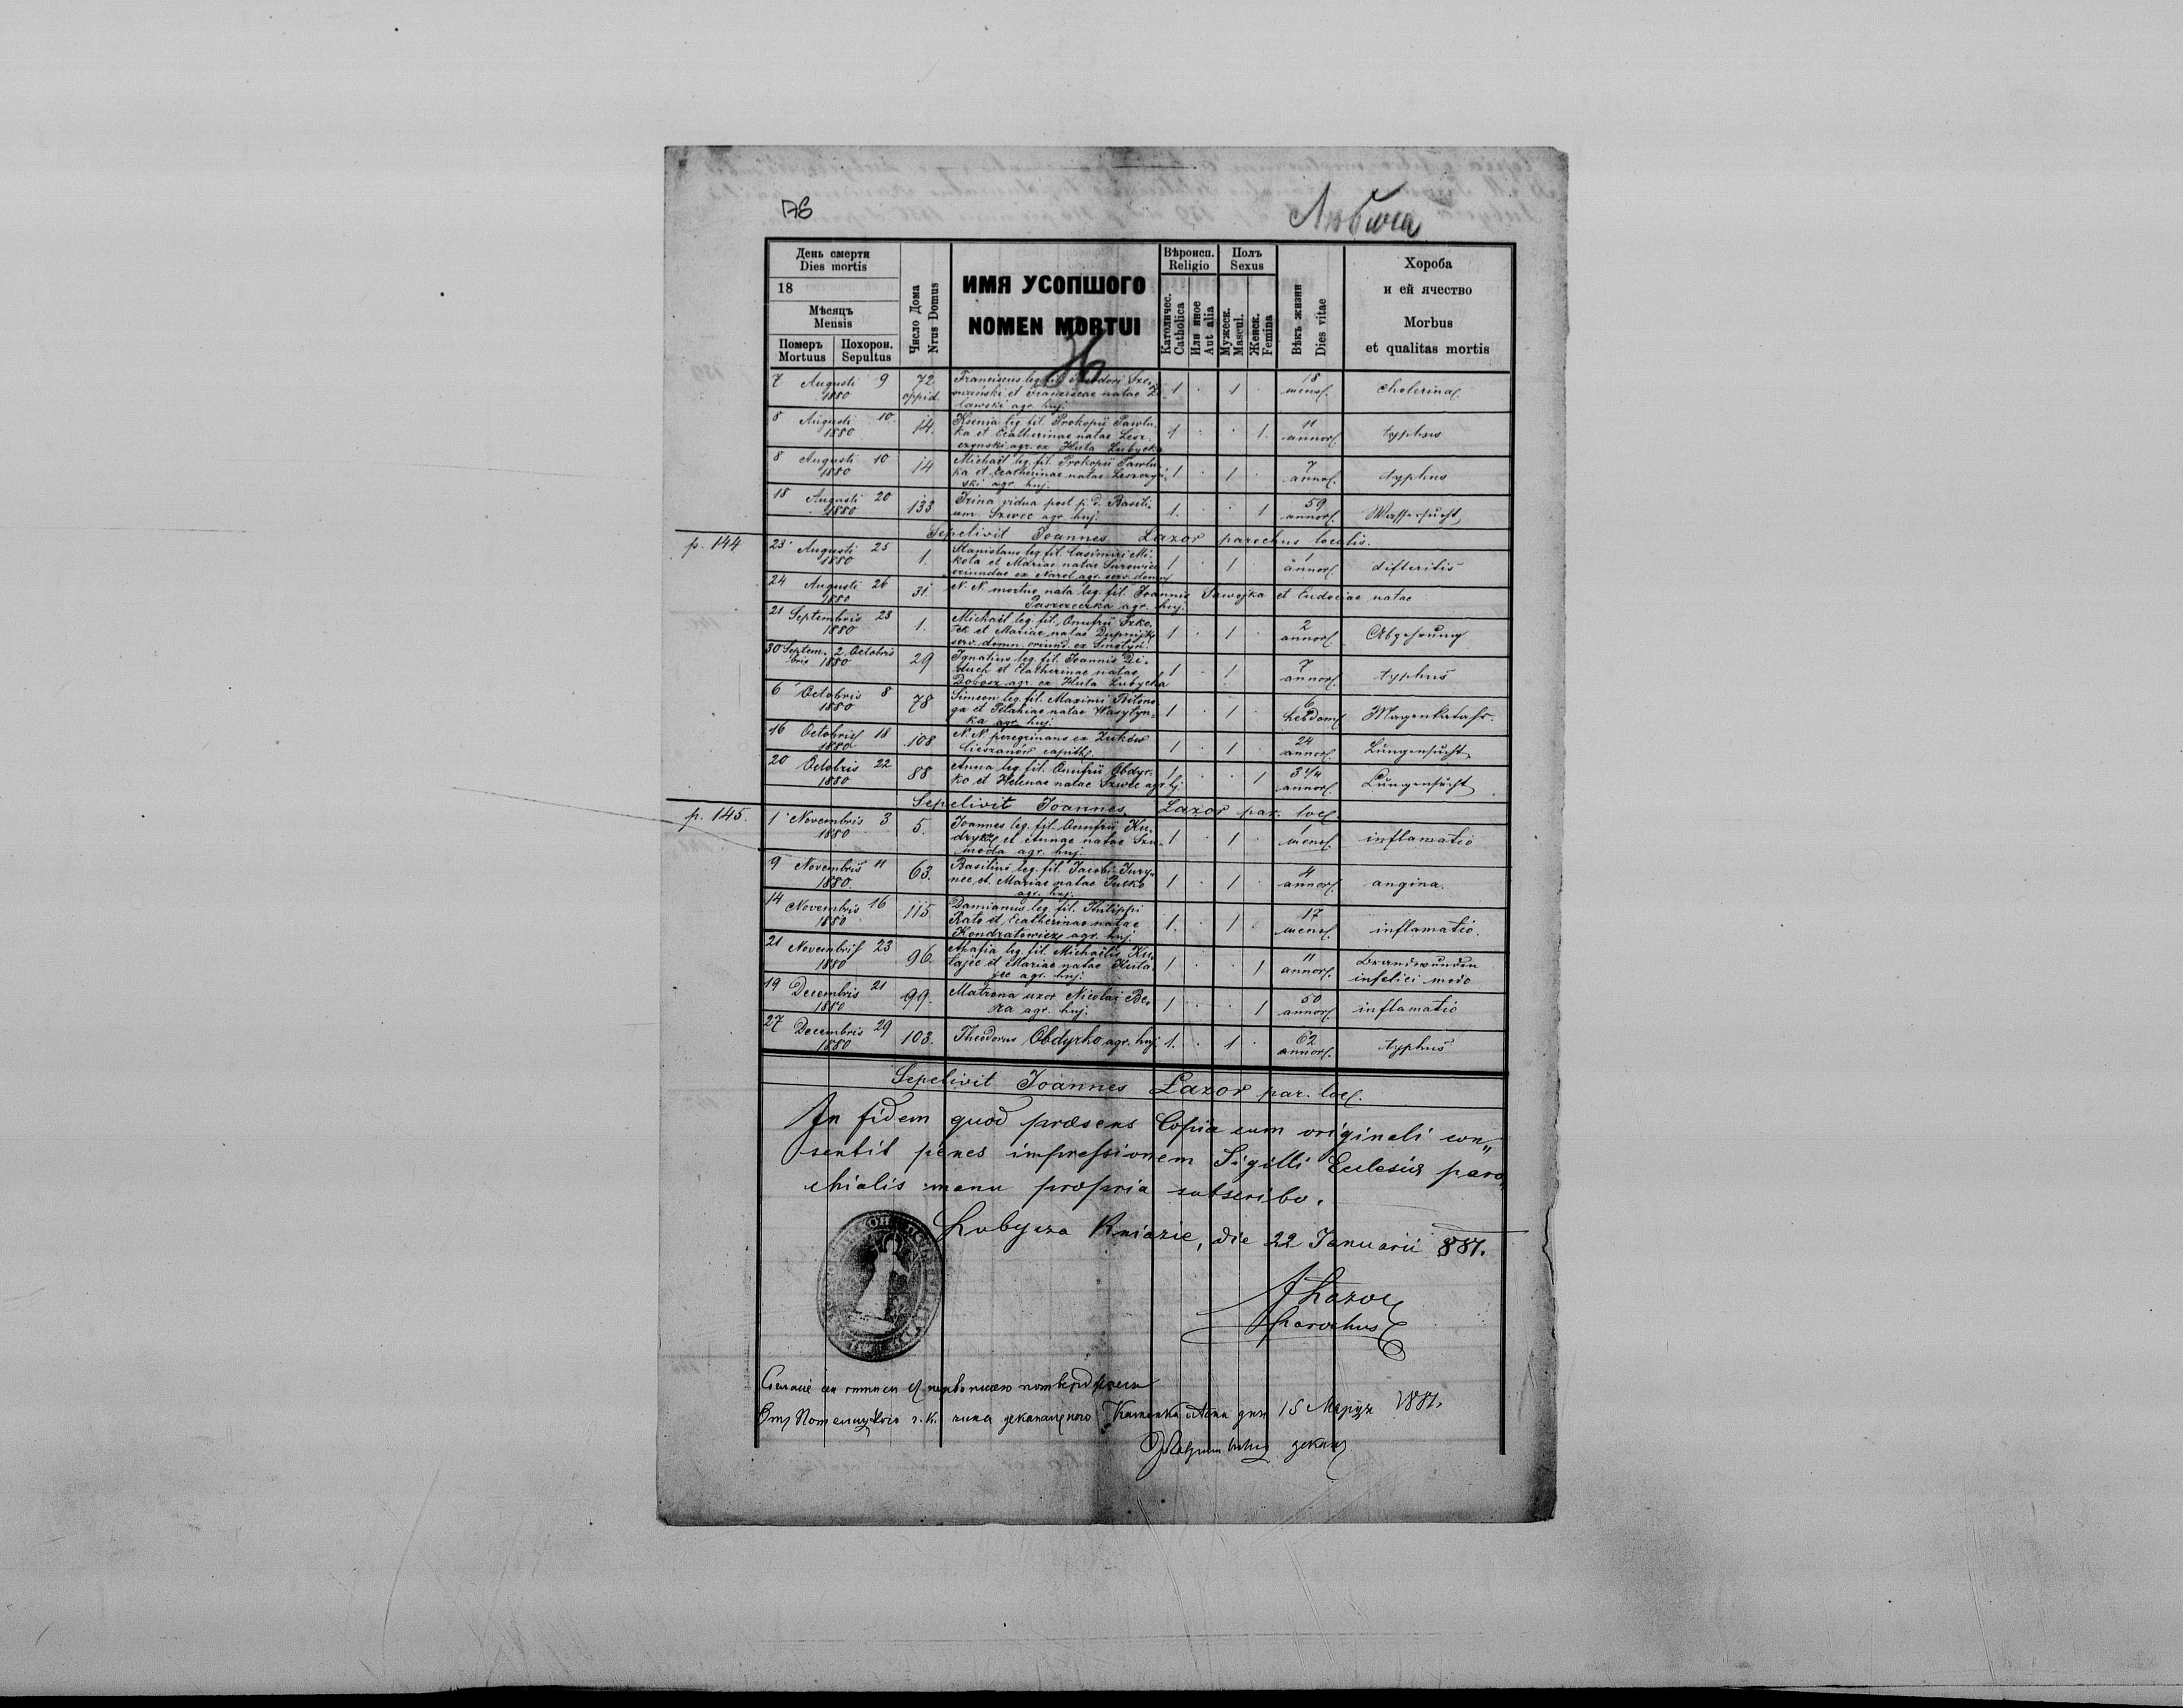 176
День смерти
Dies mortis
18
Мѣсяцъ
Mensis
Померъ Похорон.
Mortuus Sepultus
Число Дома
Nrus Domus
ИМЯ УСОПШОГО
NOMEN MORTUI
Вѣроисп.
Religio
Католичес.
Catholica
Или иное
Aut alia
Полъ
Sexus
Мужеск.
Mascul.
Женск.
Femina
Вѣкъ жизни
Dies vitae
Хороба
и ей ячество
Morbus
et qualitas mortis
7 Augusti 9 72 Franciscus leg. fil. Theodori 1 . 1 . 18
1880 oppid. et Franciscae natae mens. cholerina
agr. huj.
8 Augusti 10 14. Ksenia leg. fil. Prokopii Pawlu- 1 . . 1. 11
1880 ka et Catherinae natae Lesz- annor. typhus
czynski agr. ex Huta Lubycka
8 Augusti 10 14 Michael leg. fil. Prokopii Pawlu- 1 . 1 . 7
1880 ka et Catherinae natae Leszczyn- annor. typhus
ski agr. huj.
18 Augusti 20 133 Irina vidua post p. d. Basili- 1. . . 1 59
1880 um Szwec agr. huj. annor. Wassersucht
Sepelivit Joannes Lazor parochus localis.
p. 144
23 Augusti 25 1. Stanislaus leg. fil. Casimiri Mi- 1 . 1 . 1
1880 kota et Mariae natae Surowiec annor. difteritis
oriundae ex Narol agr. serv. domin.
24 Augusti 26 31. N. N. mortuo nata leg. fil. Joannis Sawojka et Eudociae natae
1880 agr. huj.
21 Septembris 23 1. Michael leg. fil. Onufrii 1 . 1 . 2
1880 et Mariae natae annor. Abzehrung
serv. domin. oriund. ex
30 Septem- 2 Octobris 29 Ignatius leg. fil. Joannis Di- 1 . 1 . 7
bris 1880 duch et Catherinae natae annor. typhus
Dobosz agr. ex Huta Lubycka
6 Octobris 8 78 Simeon leg. fil. Maximi 1 . 1 . 6
1880 et Pelahiae natae Wasylyn- hebdom. Magenkatahr.
ka agr. huj.
16 Octobris 18 108 N. N. peregrinans ex Zuków 1 . 1 . 24
1880 Cieszanów annor. Lungensucht
20 Octobris 22 88 Anna leg. fil. Onufrii Obdyr- 1 . . 1 3 1/4
1880 ko et Helenae natae Szwec agr. hj. annor. Lungensucht
Sepelivit Joannes Lazor par. loc.
p. 145.
1 Novembris 3 5. Joannes leg. fil. Onufrii Ku- 1 . 1 . 1
1880 et Annae natae Szu- mens. inflamatio
moda agr. huj.
9 Novembris 11 63. Basilius leg. fil. Jacobi Jury- 1 . 1 . 4
1880. nec et Mariae natae annor. angina.
agr. huj.
14 Novembris 16 115. Damianus leg. fil. Philippi 1. . 1 . 17
1880 Rato et Catherinae natae mens. inflamatio.
Kondratowicz agr. huj.
21 Novembris 23 96. Ahafia leg. fil. Michaelis Ku- 1 . . 1 11 Brandwunden
1880 lajec et Mariae natae annor. infelici modo
agr. huj.
19 Decembris 21 99. Matrona uxor Nicolai Be- 1 . . 1 50
1880 za agr. huj. annor. inflamatio
27 Decembris 29 103. Theodorus Obdyrko agr. huj. 1. . 1 . 62
1880 annor. typhus
Sepelivit Joannes Lazor par. loc.
In fidem quod praesens Copia cum originali con„
sentit penes impressionem Sigilli Ecclesiae paro„
chialis manu propria subscribo.
Lubycza Kniazie, die 22 Januarii 881.
J Lazor
parochus
15 Марця 1881.